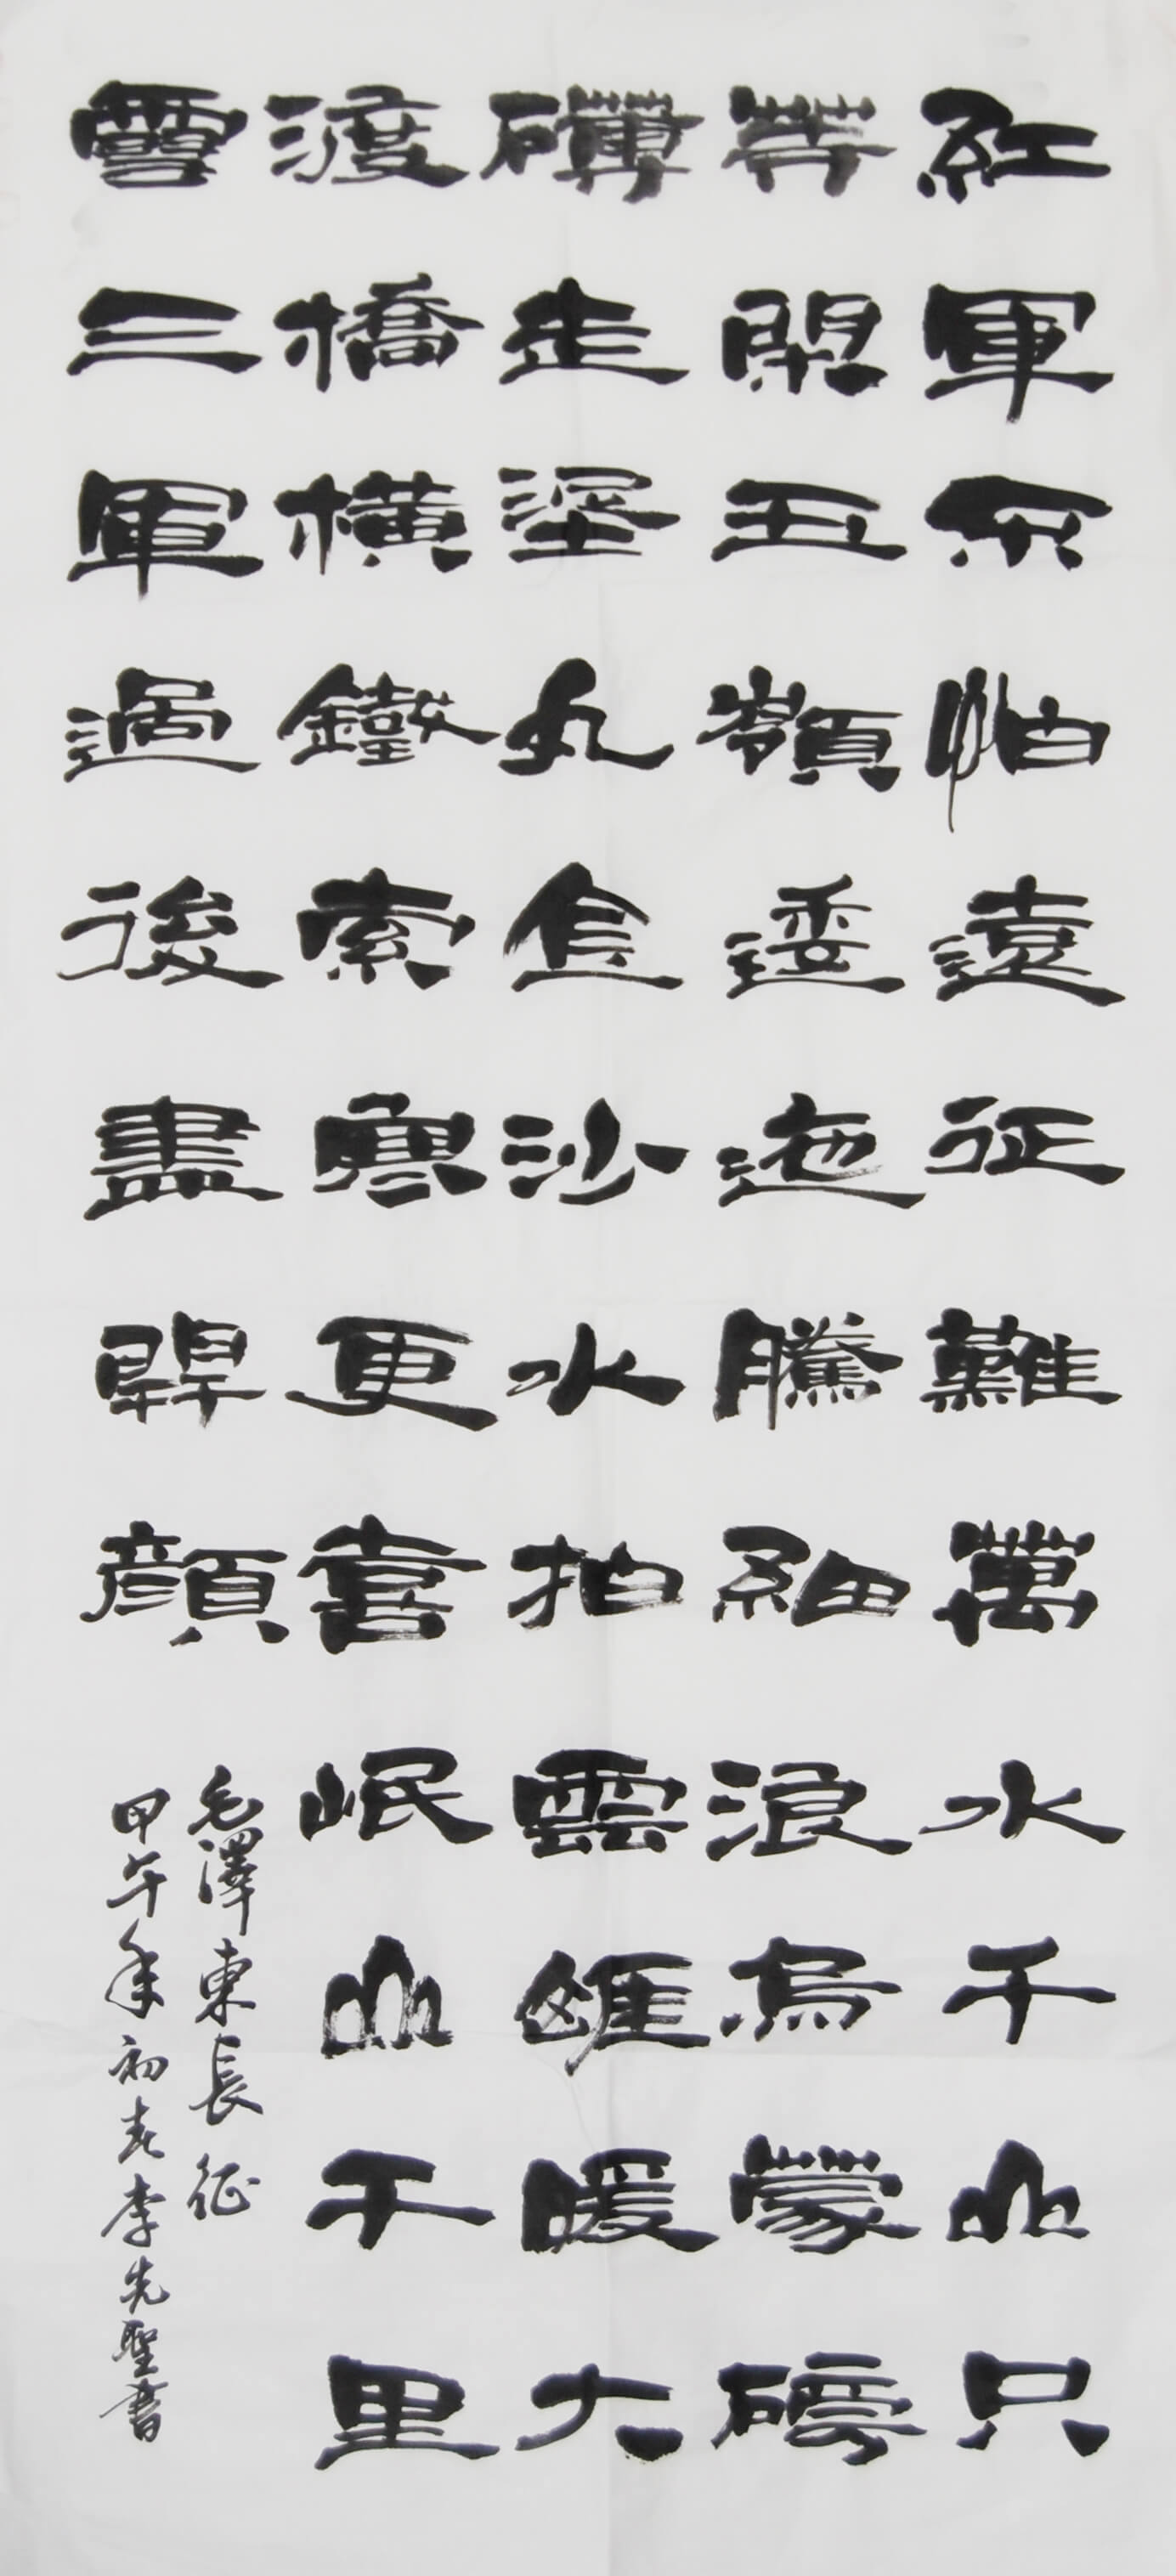 紅軍不怕遠征難萬水千山只
等閑五嶺逶迤騰細浪烏蒙磅
礴走泥丸金沙水拍雲崖暖大
渡橋橫鐵索寒更喜岷山千里
雪三軍過後盡開顏
毛澤東長征
甲午年初春李先聖書